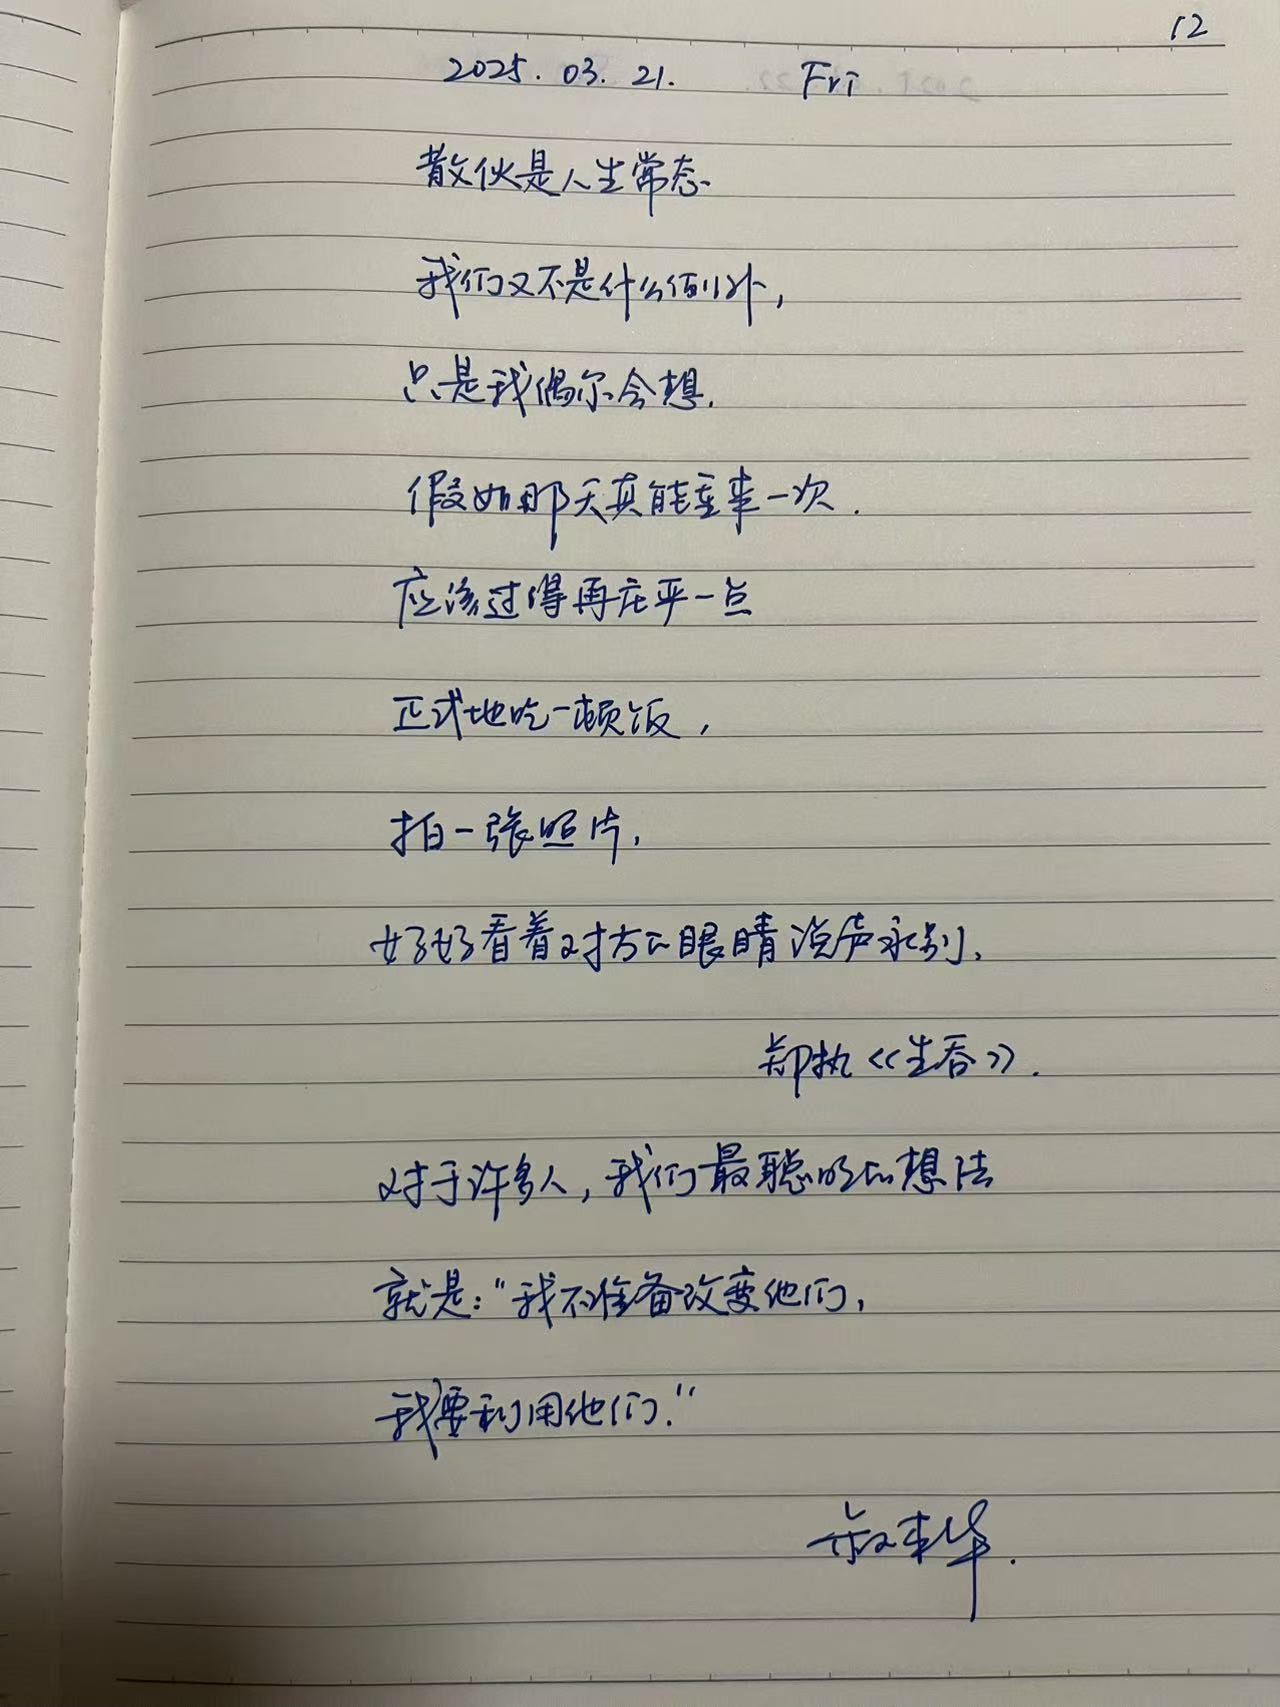 12
2025. 03. 21. Fri
散伙是人生常态.
我们又不是什么例外,
只是我偶尔会想.
假如那天真能重来一次.
应该过得再庄严一点
正式地吃一顿饭,
拍一张照片,
好好看着对方的眼睛说声永别.
郑执《生吞》.
对于许多人,我们最聪明的想法
就是:“我不准备改变他们,
我要利用他们.”
叔本华.